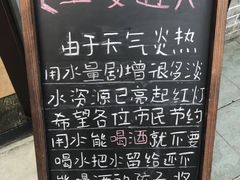 由于天气炎热
用水量剧增很多淡
水资源已亮起红灯
希望各位市民节约
用水能喝酒就不要
喝水把水留给还不
能喝酒